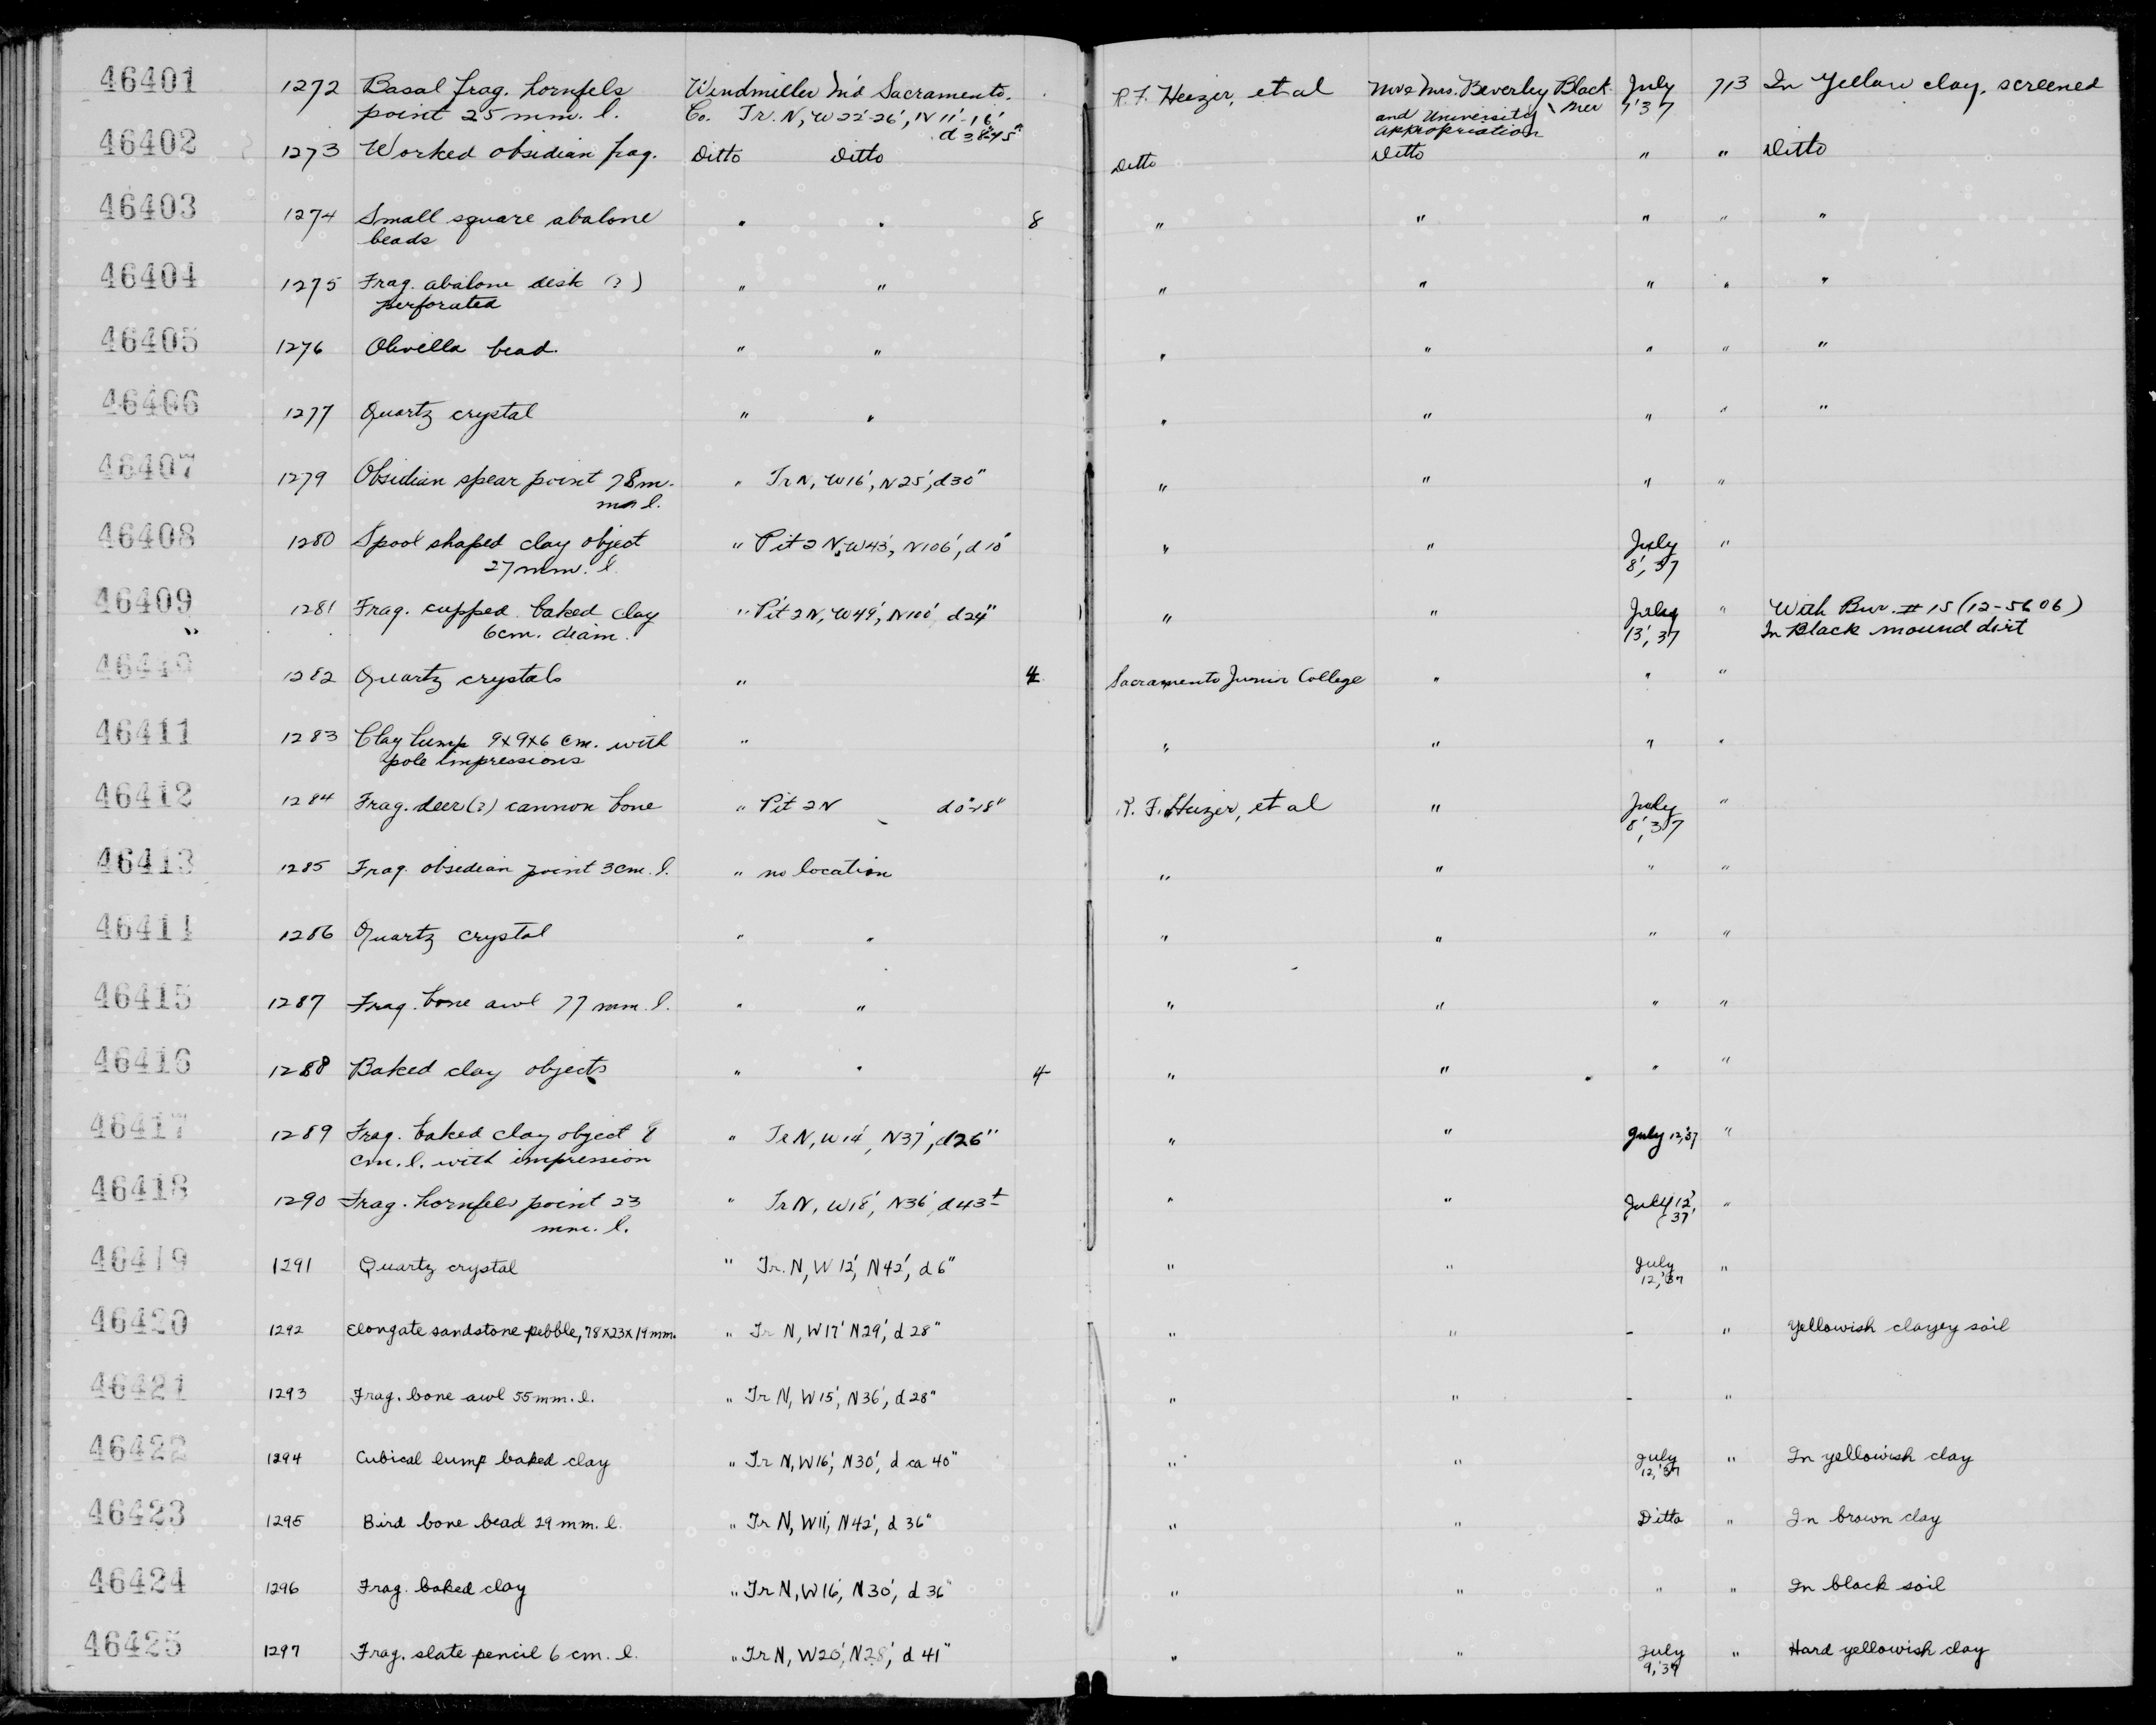 46401 1272 Basal frag. hornfels Windmiller M'd Sacramento. R. F. Heizer, et al Mr & Mrs. Beverley Black- July 713 In Yellow clay, screened
point 25 mm. l. Co. Tr. N, W 22'-26', N 11'-16' and University mer 7'37
d 38"-45" appropriation
46402 1273 Worked obsidian frag. Ditto Ditto Ditto Ditto " " Ditto
46403 1274 Small square abalone " " 8 " " " " "
beads
46404 1275 Frag. abalone disk (?) " " " " " " "
perforated
46405 1276 Olivella bead. " " " " " " "
46406 1277 Quartz crystal " " " " " " "
46407 1279 Obsidian spear point 78 m. " Tr N, W16', N25', d30" " " " "
m l.
46408 1280 Spool shaped clay object " Pit 2 N, W43', N106', d 10" " " July "
27 mm. l. 8', 37
46409 1281 Frag. cupped baked clay " Pit 2 N, W49', N100' d24" " " July " With Bur. # 15 (12-5606)
" 6 cm. diam. 13', 37 In Black mound dirt
46410 1282 Quartz crystals " 4 Sacramento Junior College " " "
46411 1283 Clay lump 9x9x6 cm. with " " " " "
pole impressions
46412 1284 Frag. deer(?) cannon bone " Pit 2 N d0"-18" R. F. Heizer, et al " July "
8', 37
46413 1285 Frag. obsidian point 3 cm. l. " no location " " " "
46414 1286 Quartz crystal " " " " " "
46415 1287 Frag. bone awl 77 mm. l. " " " " " "
46416 1288 Baked clay objects " " 4 " " " "
46417 1289 Frag. baked clay object 8 " Tr N, W14', N37', d26" " " July 12,'37 "
cm. l. with impression
46418 1290 Frag. hornfels point 23 " Tr N, W18', N36' d43± " " July 12', "
mm. l. 37
46419 1291 Quartz crystal " Tr. N, W 12', N42', d 6" " " July "
12,'37
46420 1292 Elongate sandstone pebble, 78x23x19 mm. " Tr N, W17' N29', d 28" " " - " Yellowish clayey soil
46421 1293 Frag. bone awl 55 mm. l. " Tr N, W15', N36', d 28" " " - "
46422 1294 Cubical lump baked clay " Tr N, W16', N30', d ca 40" " " July " In yellowish clay
12,'37
46423 1295 Bird bone bead 29 mm. l. " Tr N, W11', N42', d 36" " " Ditto " In brown clay
46424 1296 Frag. baked clay " Tr N, W16', N30', d 36" " " " " In black soil
46425 1297 Frag. slate pencil 6 cm. l. " Tr N, W20', N28', d 41" " " July " Hard yellowish clay
9,'37